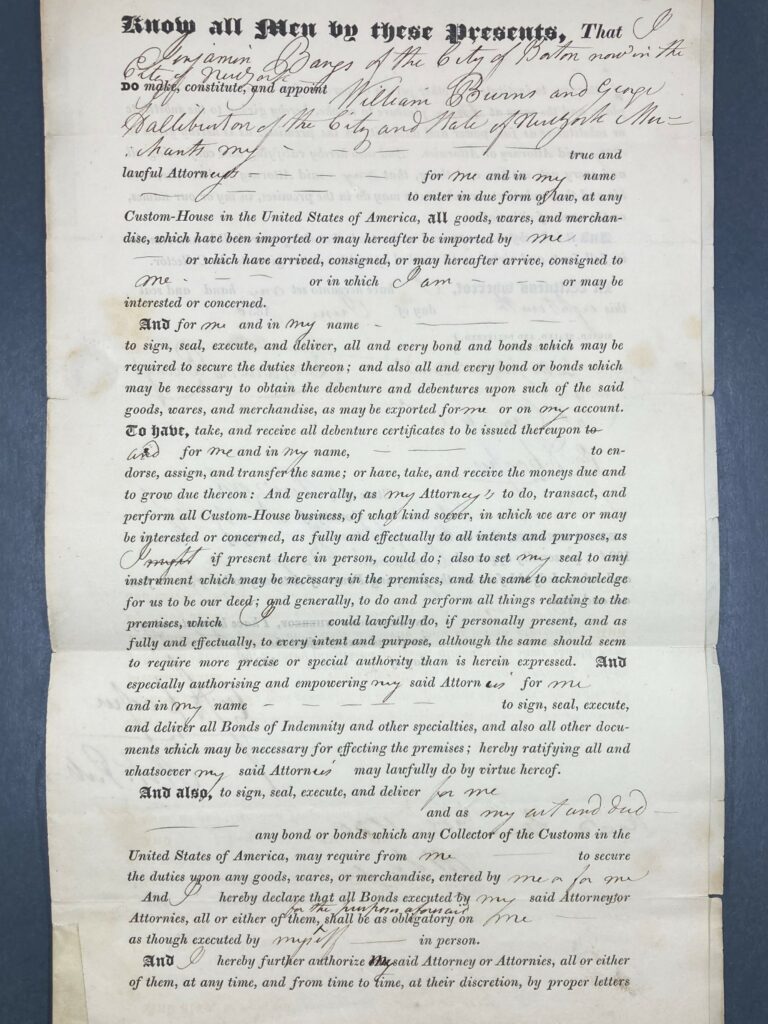 Know all Men by these Presents, That I
Benjamin Bangs of the City of Boston now in the
City of New York
DO make, constitute, and appoint William Burns and George
Halliburton of the City and State of New York Mer-
chants my true and
lawful Attorneys for me and in my name
to enter in due form of law, at any
Custom-House in the United States of America, all goods, wares, and merchan-
dise, which have been imported or may hereafter be imported by me
or which have arrived, consigned, or may hereafter arrive, consigned to
me or in which I am or may be
interested or concerned.
And for me and in my name
to sign, seal, execute, and deliver, all and every bond and bonds which may be
required to secure the duties thereon; and also all and every bond or bonds which
may be necessary to obtain the debenture and debentures upon such of the said
goods, wares, and merchandise, as may be exported for me or on my account.
To have, take, and receive all debenture certificates to be issued thereupon to
and for me and in my name, to en-
dorse, assign, and transfer the same; or have, take, and receive the moneys due and
to grow due thereon: And generally, as my Attorney's to do, transact, and
perform all Custom-House business, of what kind soever, in which we are or may
be interested or concerned, as fully and effectually to all intents and purposes, as
I might if present there in person, could do; also to set my seal to any
instrument which may be necessary in the premises, and the same to acknowledge
for us to be our deed; and generally, to do and perform all things relating to the
premises, which I could lawfully do, if personally present, and as
fully and effectually, to every intent and purpose, although the same should seem
to require more precise or special authority than is herein expressed. And
especially authorising and empowering my said Attornies for me
and in my name to sign, seal, execute,
and deliver all Bonds of Indemnity and other specialties, and also all other docu-
ments which may be necessary for effecting the premises; hereby ratifying all and
whatsoever my said Attornies may lawfully do by virtue hereof.
And also, to sign, seal, execute, and deliver for me
and as my act and deed
any bond or bonds which any Collector of the Customs in the
United States of America, may require from me to secure
the duties upon any goods, wares, or merchandise, entered by me or for me
And I hereby declare that all Bonds executed by my said Attorney or
for the purposes aforesaid
Attornies, all or either of them, shall be as obligatory on me
as though executed by myself in person.
And I hereby further authorize my said Attorney or Attornies, all or either
of them, at any time, and from time to time, at their discretion, by proper letters